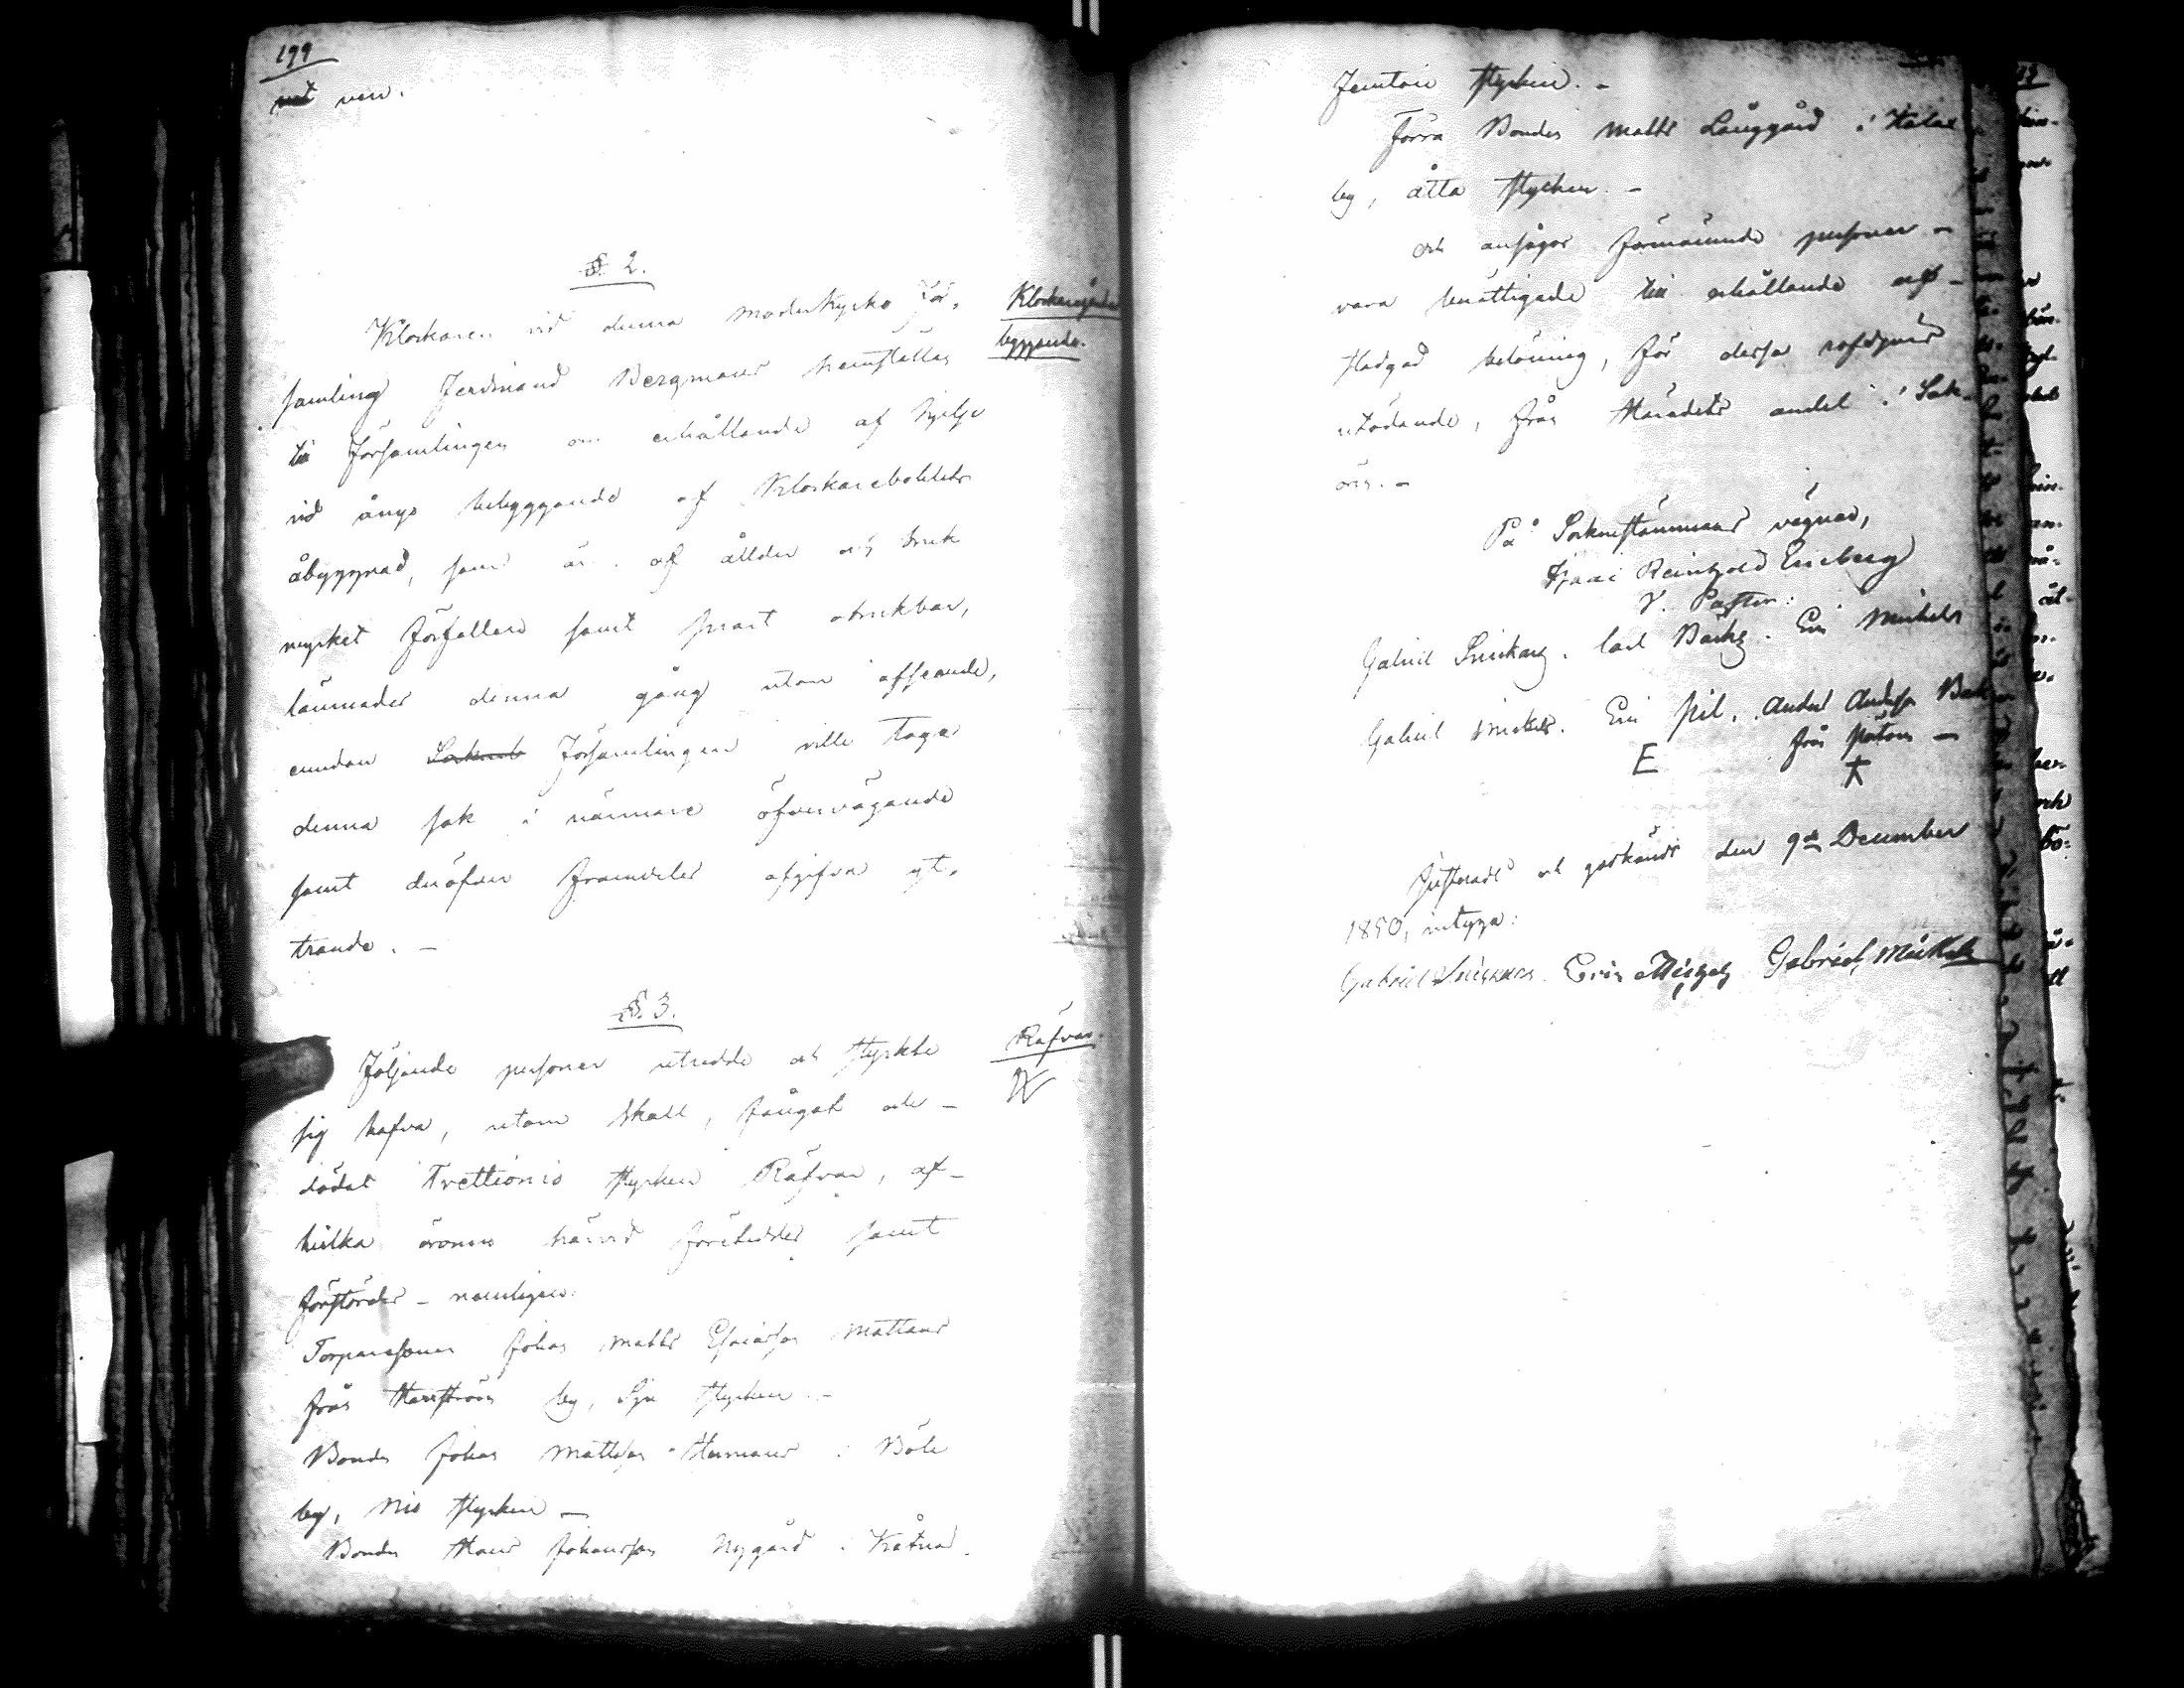 199
ven.
§. 2.
Klockaren vid denna moderkyrko för,
Klockaregårdens
byggande.
samling Ferdinand Bergmans hemställan
till Församlingen om erhållande af hjelp
vid ånyo bebyggande af Klockarebohlets
åbyggnad, som är af ållder och bruk
mycket förfallen samt snart obrukbar,
lämnades denna gång utan afseende,
emedan Församlingen ville taga
denna sak i närmare öfvervägande
samt deröfver framdeles afgifva yt,
trande. –
§. 3.
Räfvar.
Följande personer utredde och styrkte
sig hafva, utom skall, fångat och –
dödat Trettionio stycken Räfvar, af –
hvilka öronen härvid företeddes samt
förstördes – nämligen:
Torparesonen Johan Matts Esaiasson Mattans
från Harrström by, Sju stycken. –
Bonden Johan Mattsson Hermans i Böle
by, Nio stycken –
Bonden Hans Johansson Nygård i Träskvik
Femton stycken. –
Förra Bonden Matts Långgård i
by, åtta stycken. –
och ansågos förenämnde personer –
vara berättigade till erhållande af –
stadgad belöning, för dessa rofdjurs
utödande, från Häradets andel i Sak-
ören. –
På Sockenstämmans vägnar,
Isaac Reinhold Eneberg
V. Pastor.
Gabriel Snickars. Carl Backg. Eric Mickels
Gabriel Mickels. Eric Anders Andersson Back
E från
Justerade och godkändt den 9de December
1850, intyga:
Gabriel Snickars. Eric Mickels Gabriel Mickels